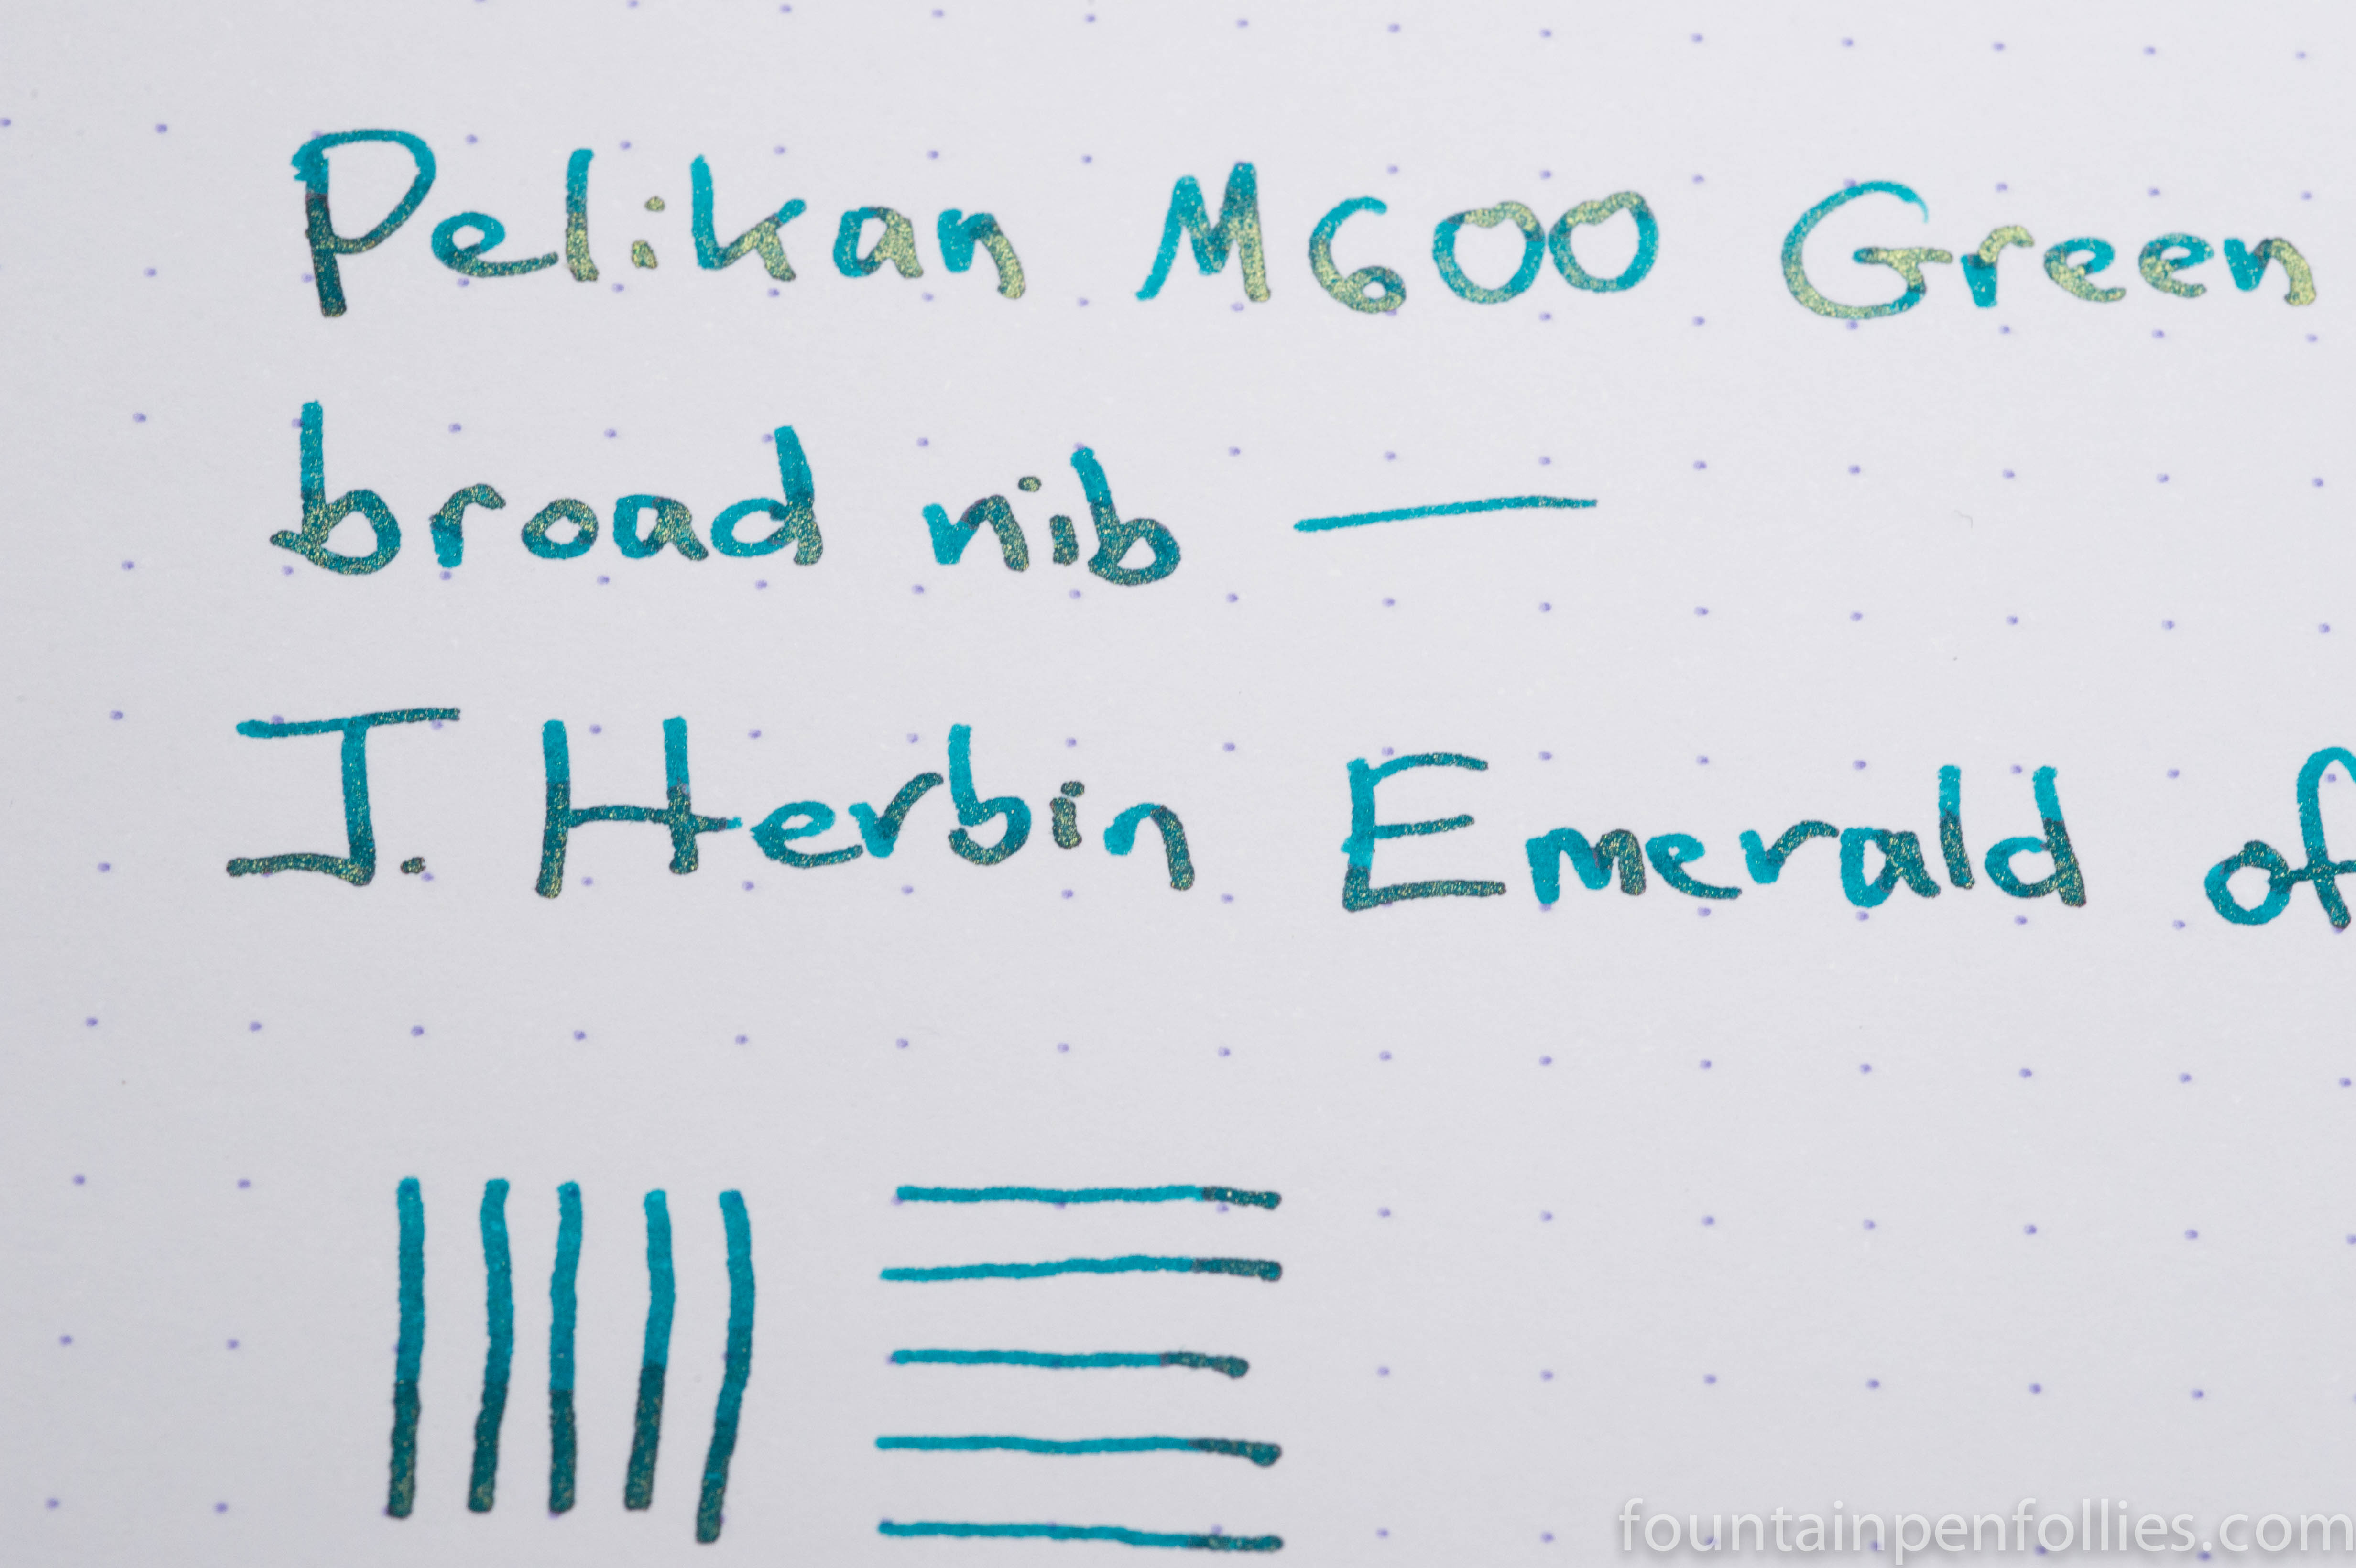 Pelikan M600 Green
broad nib —
J. Herbin Emerald of
fountainpenfollies.com